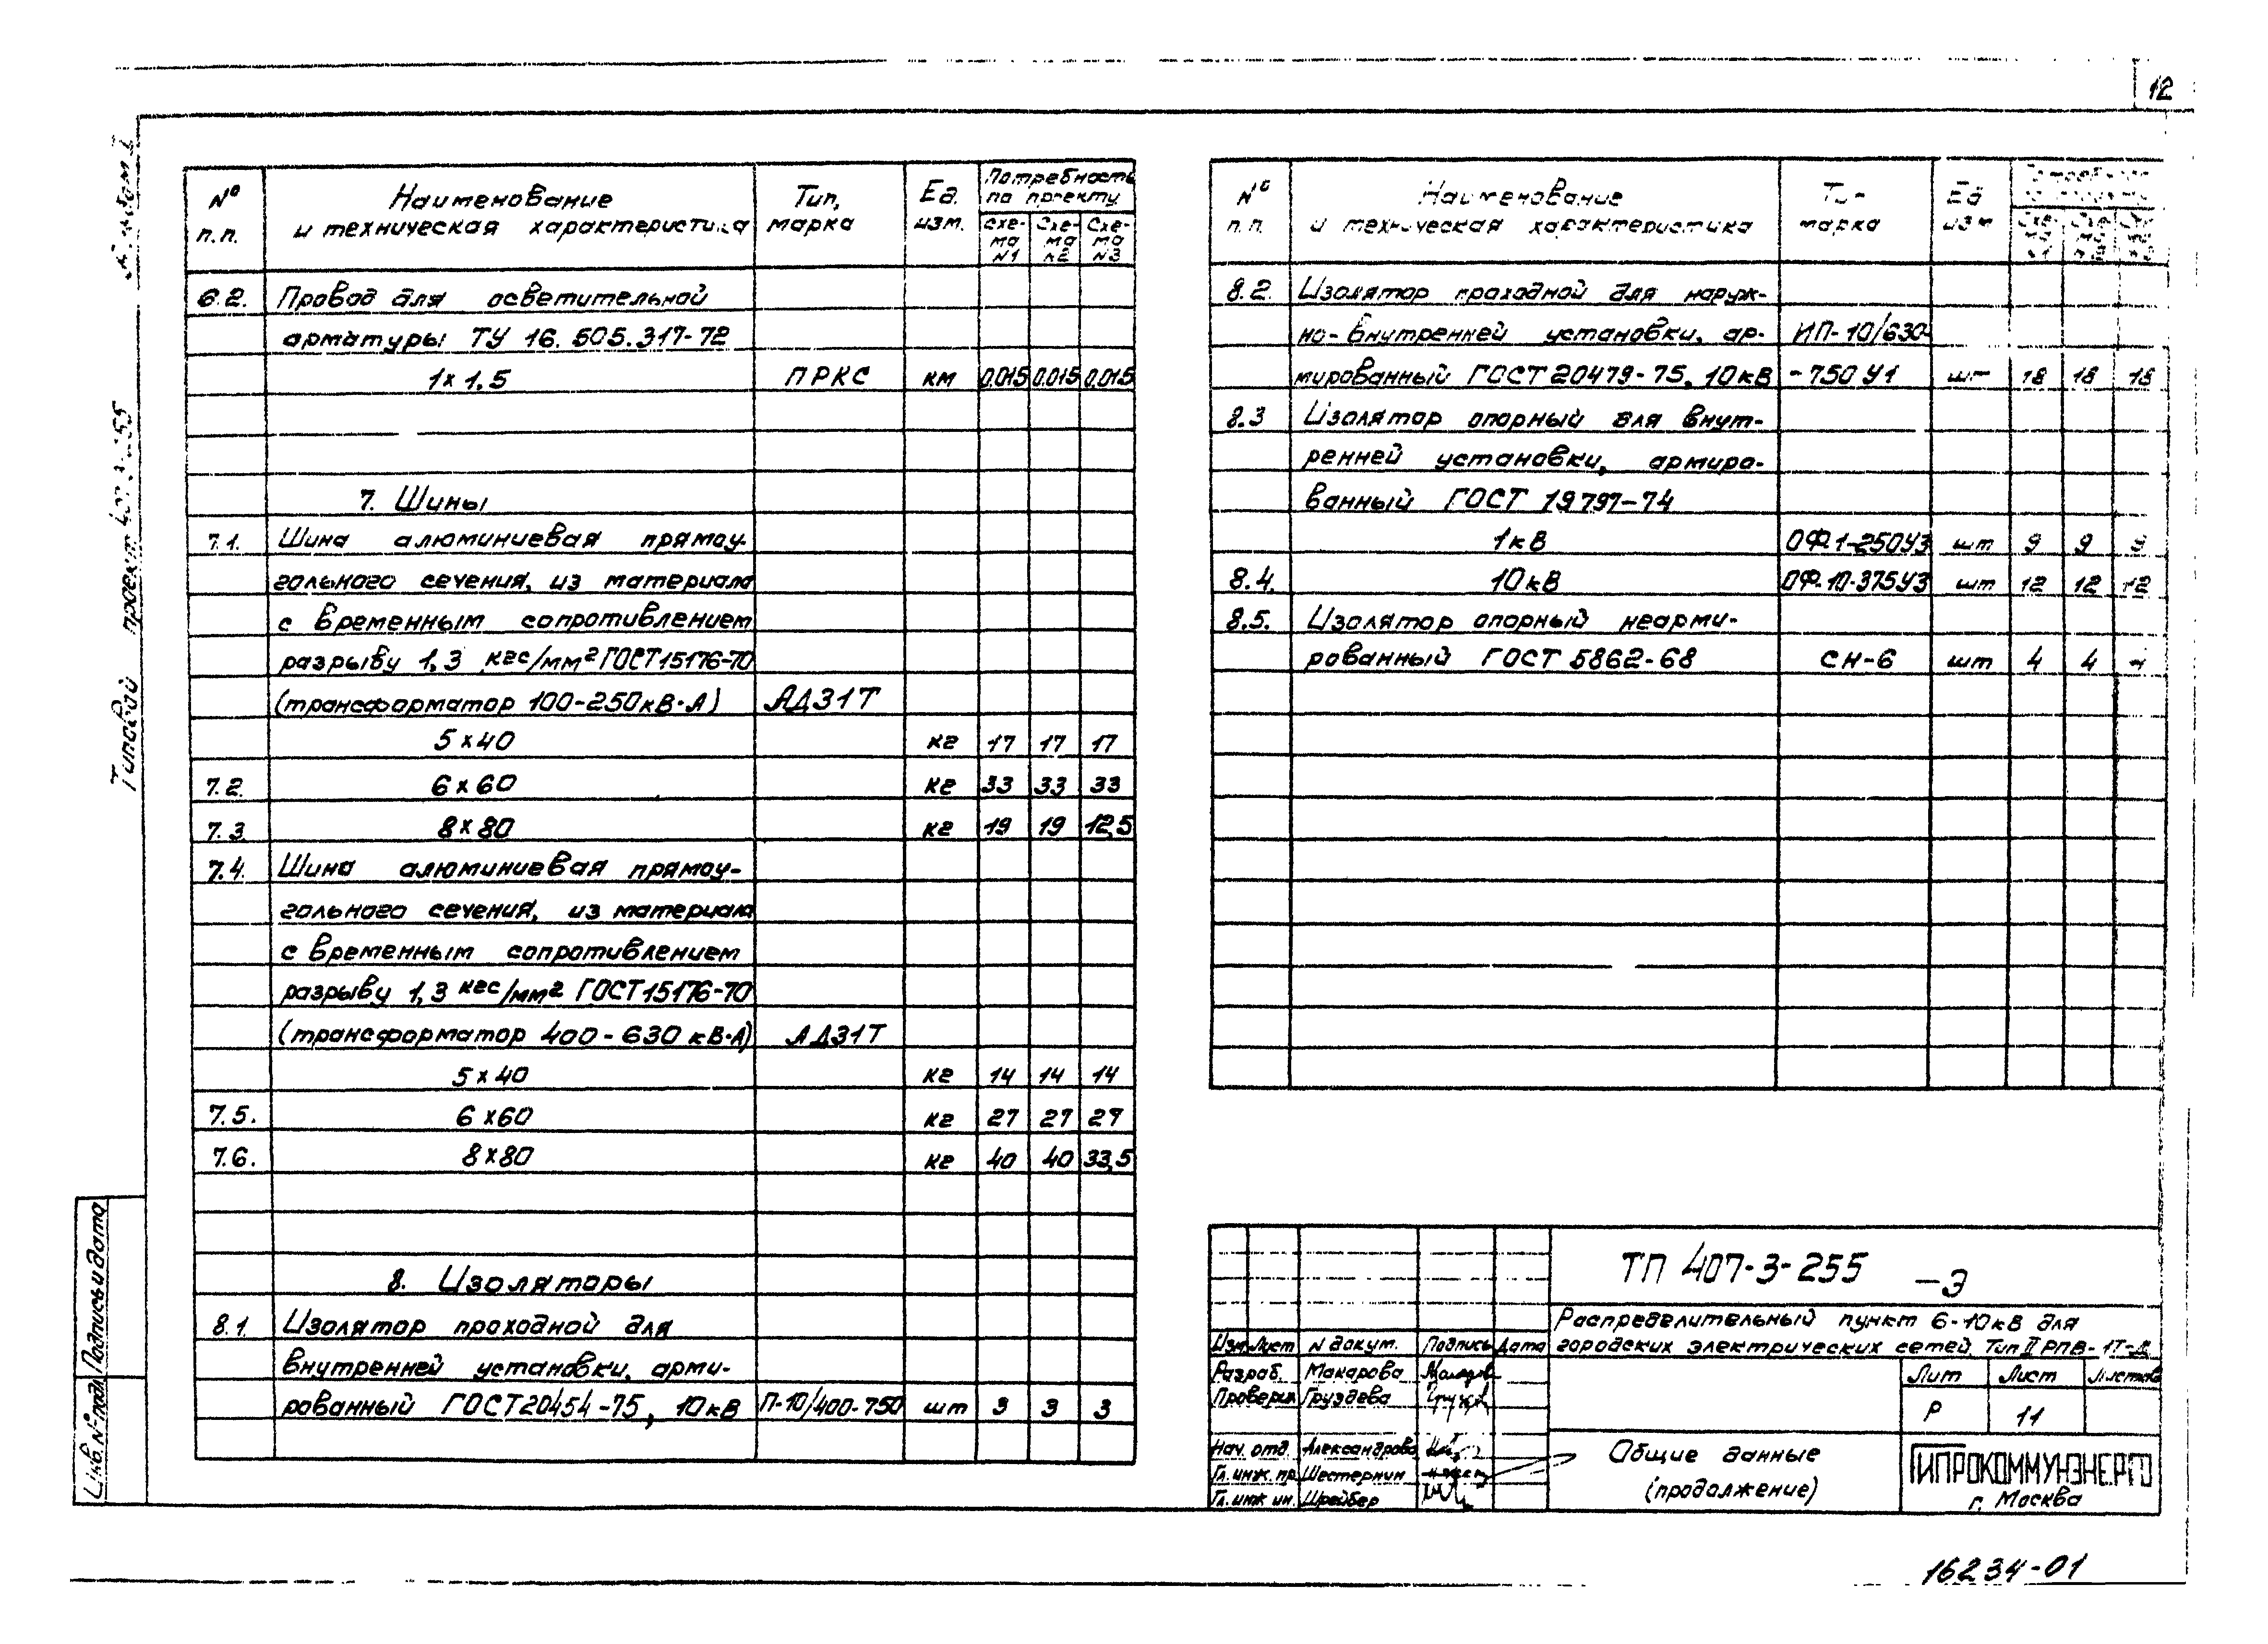 12
№ п.п. Наименование и техническая характеристика Тип, марка Ед. изм. Потребность по проекту
Схема N1 Схема N2 Схема N3
6.2. Провод для осветительной
арматуры ТУ 16.505.317-72
1х1,5 ПРКС км 0,015 0,015 0,015
7. Шины
7.1. Шина алюминиевая прямоу-
гольного сечения, из материала
с временным сопротивлением
разрыву 1,3 кгс/мм² ГОСТ15176-70
(трансформатор 100-250кВ·А) АД31Т
5х40 кг 17 17 17
7.2. 6х60 кг 33 33 33
7.3. 8х80 кг 19 19 12,5
7.4. Шина алюминиевая прямоу-
гольного сечения, из материала
с временным сопротивлением
разрыву 1,3 кгс/мм² ГОСТ15176-70
(трансформатор 400-630 кВ·А) АД31Т
5х40 кг 14 14 14
7.5. 6х60 кг 27 27 27
7.6. 8х80 кг 40 40 33,5
8. Изоляторы
8.1. Изолятор проходной для
внутренней установки, арми-
рованный ГОСТ20454-75, 10кВ П-10/400-750 шт 3 3 3
№ п.п. Наименование и техническая характеристика марка Ед изм
8.2. Изолятор проходной для наруж-
но-внутренней установки, ар- ИП-10/630-
мированный ГОСТ20479-75, 10кВ -750У1 шт 18 18 18
8.3 Изолятор опорный для внут-
ренней установки, армиро-
ванный ГОСТ 19797-74
1кВ ОФ-1-250У3 шт 9 9 9
8.4. 10кВ ОФ-10-375У3 шт 12 12 12
8.5. Изолятор опорный неарми-
рованный ГОСТ 5862-68 СН-6 шт 4 4 4
Типовой проект 407-3-255
Подпись и дата
Инв. № подл
ТП 407-3-255 -Э
Распределительный пункт 6-10кВ для
городских электрических сетей. Тип II РПВ-1Т-
Изм. Лист N докум. Подпись Дата
Разраб. Макарова
Проверил Груздева
Нач. отд. Александрова
Гл. инж. пр. Шестернин
Гл. инж ин. Шрейбер
Лит Лист Листов
Р 11
Общие данные
(продолжение)
ГИПРОКОММУНЭНЕРГО
г. Москва
16234-01